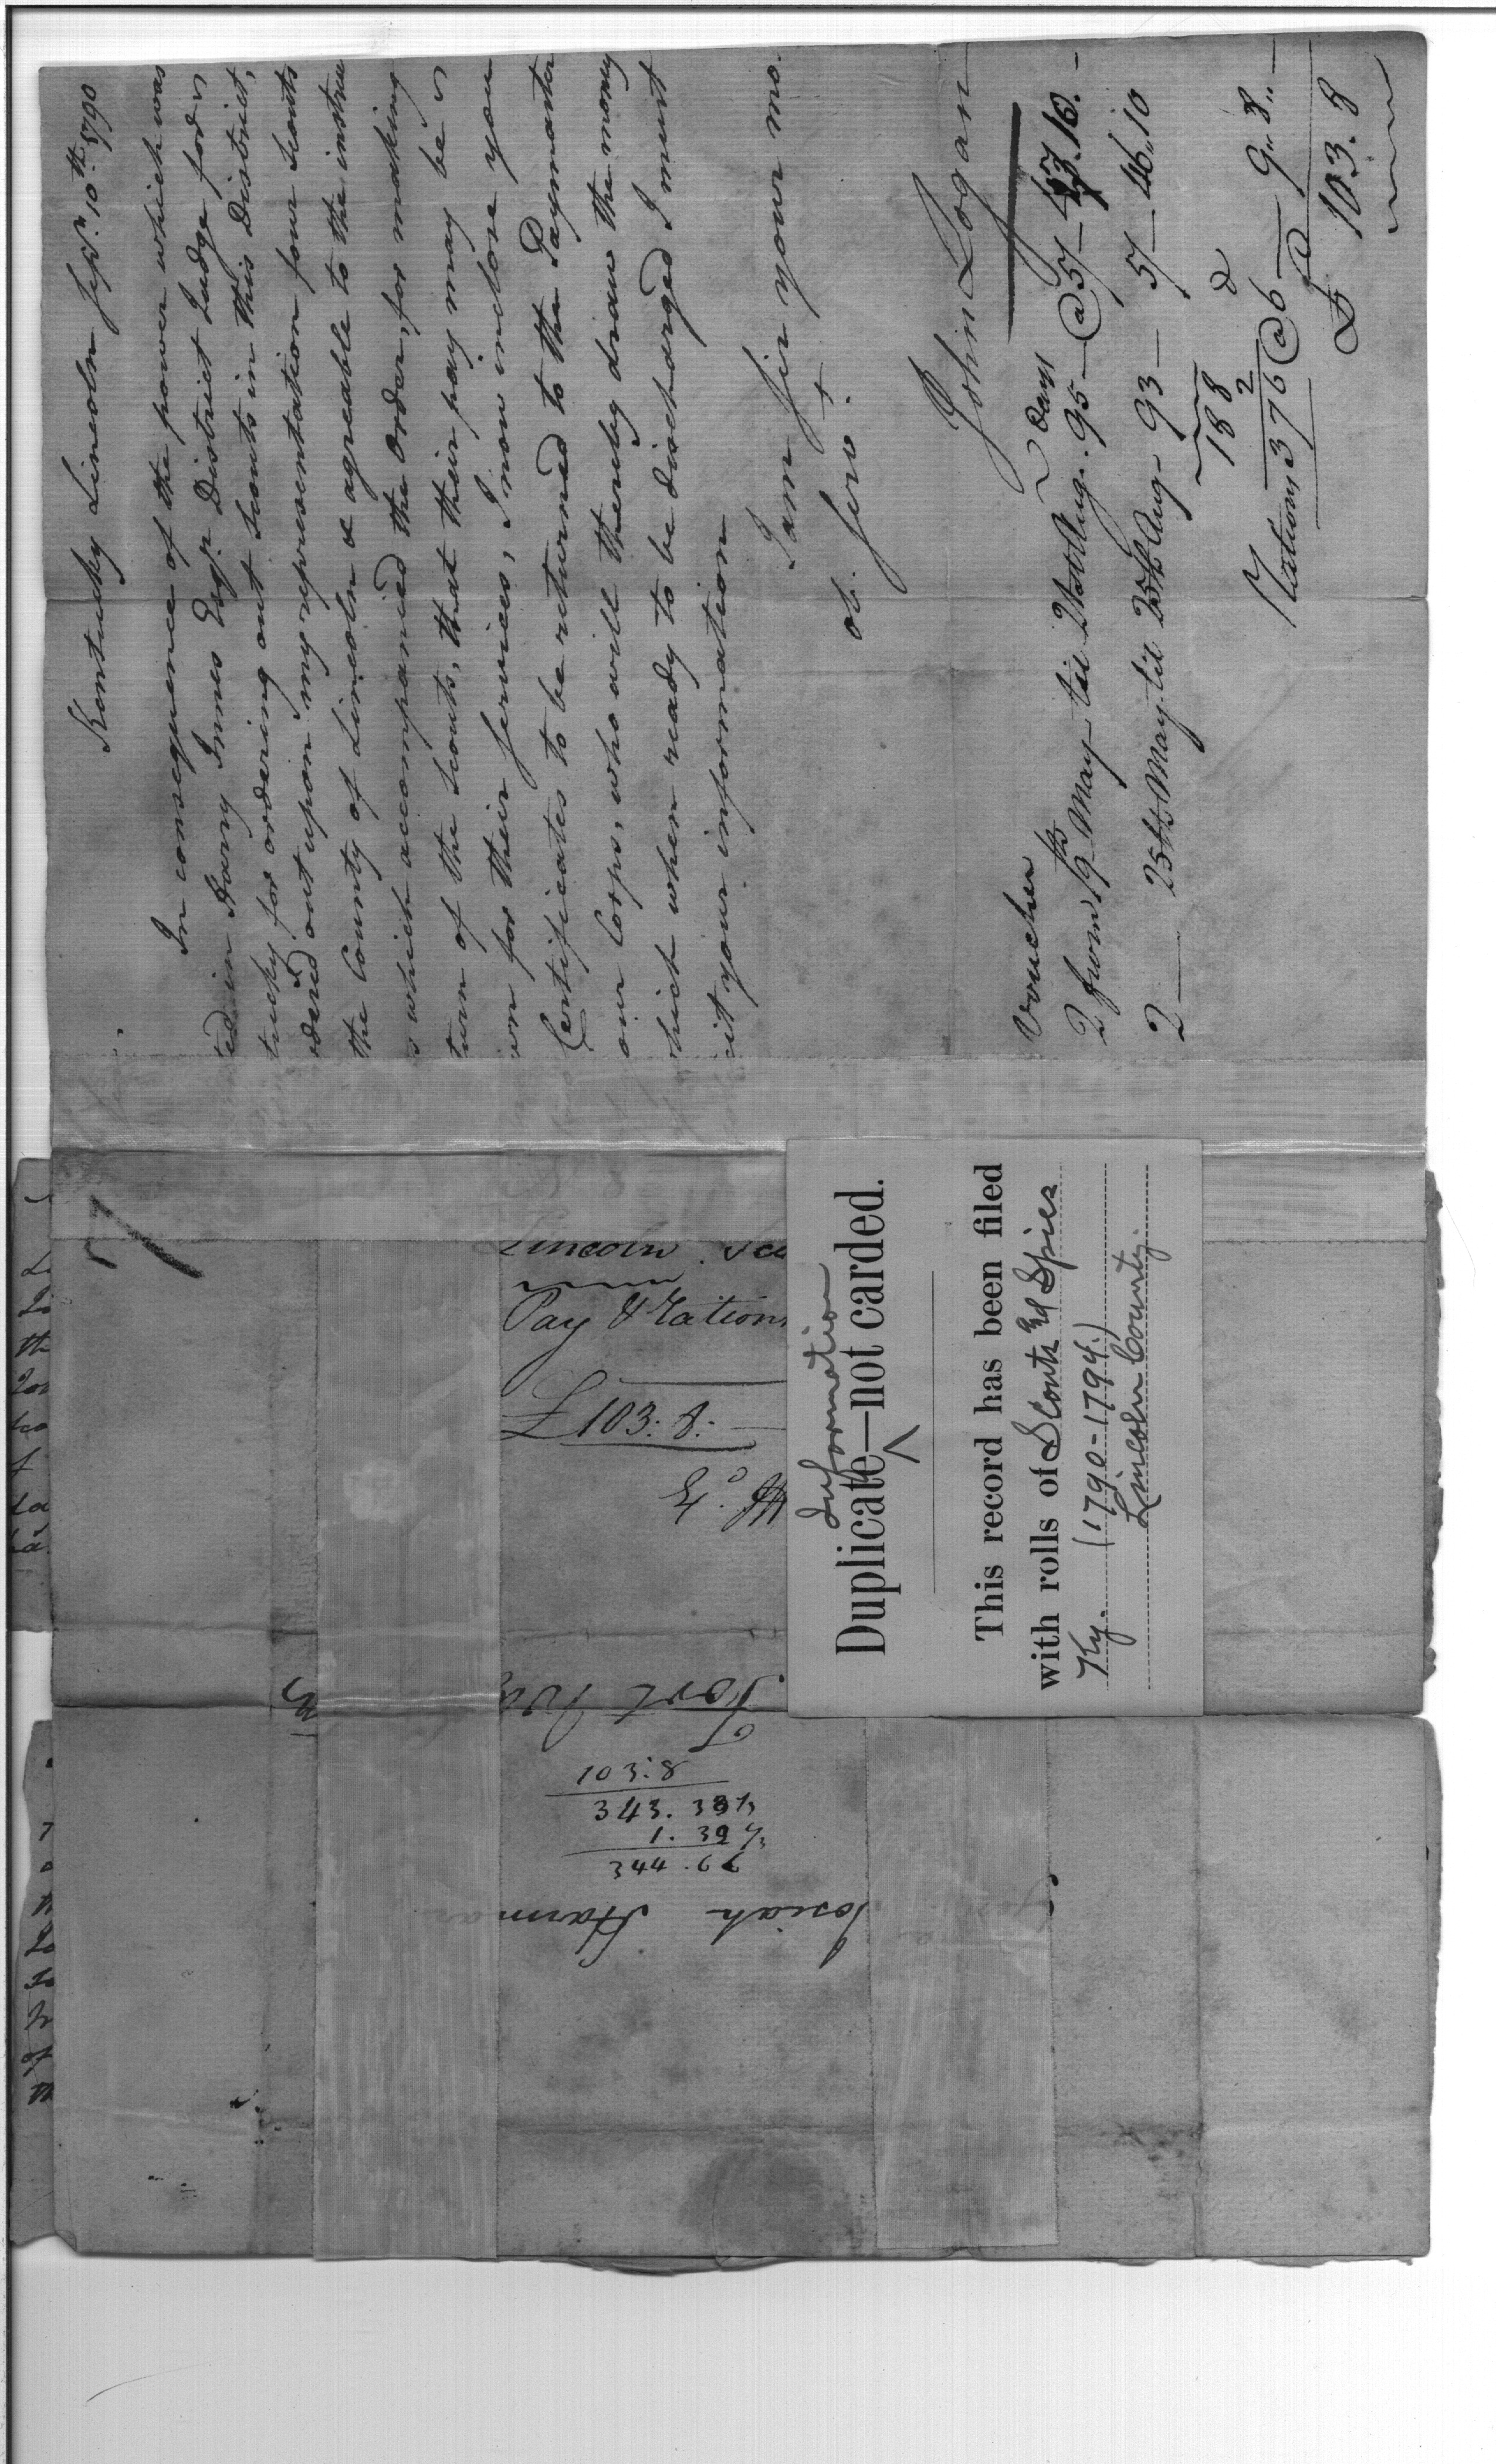 Kentucky Lincoln Sepr. 10th. 1790
In consequence of the power which was
ed in Harry Innes Esqr. District Judge for
tucky for ordering out scouts in this District,
I
ordered out upon my representation four scouts
the County of Lincoln & agreeable to the instruc
which accompanied the Order, for making
turn of the scouts, that their pay may be
for their services, I now inclose you
Certificates to be returned to the Paymaster
our Corps, who will thereby draw the money
hich when ready to be discharged I must
it your information
I am Sir your mo.
ob. Serv.t
John Logan
Voucher
Days
2 from 19th May til 21st Aug. 95 — @ 5/ — 47.10. —
2 — 25th May til 25th Aug. 93 — 5/ — 46,,10
188
2
Rations 376 @ 6d — 9,, 8,, —
£ 103. 8
7
Lincoln Sco
Pay & rations
£103: 8: —
Duplicate—not carded.
Information
This record has been filed
with rolls of Scouts and Spies
Ky. (1790-1794.)
Lincoln County.
Fort
103:8
343. 33⅓
1. 39 ⅓
344.66
Josiah Harmar